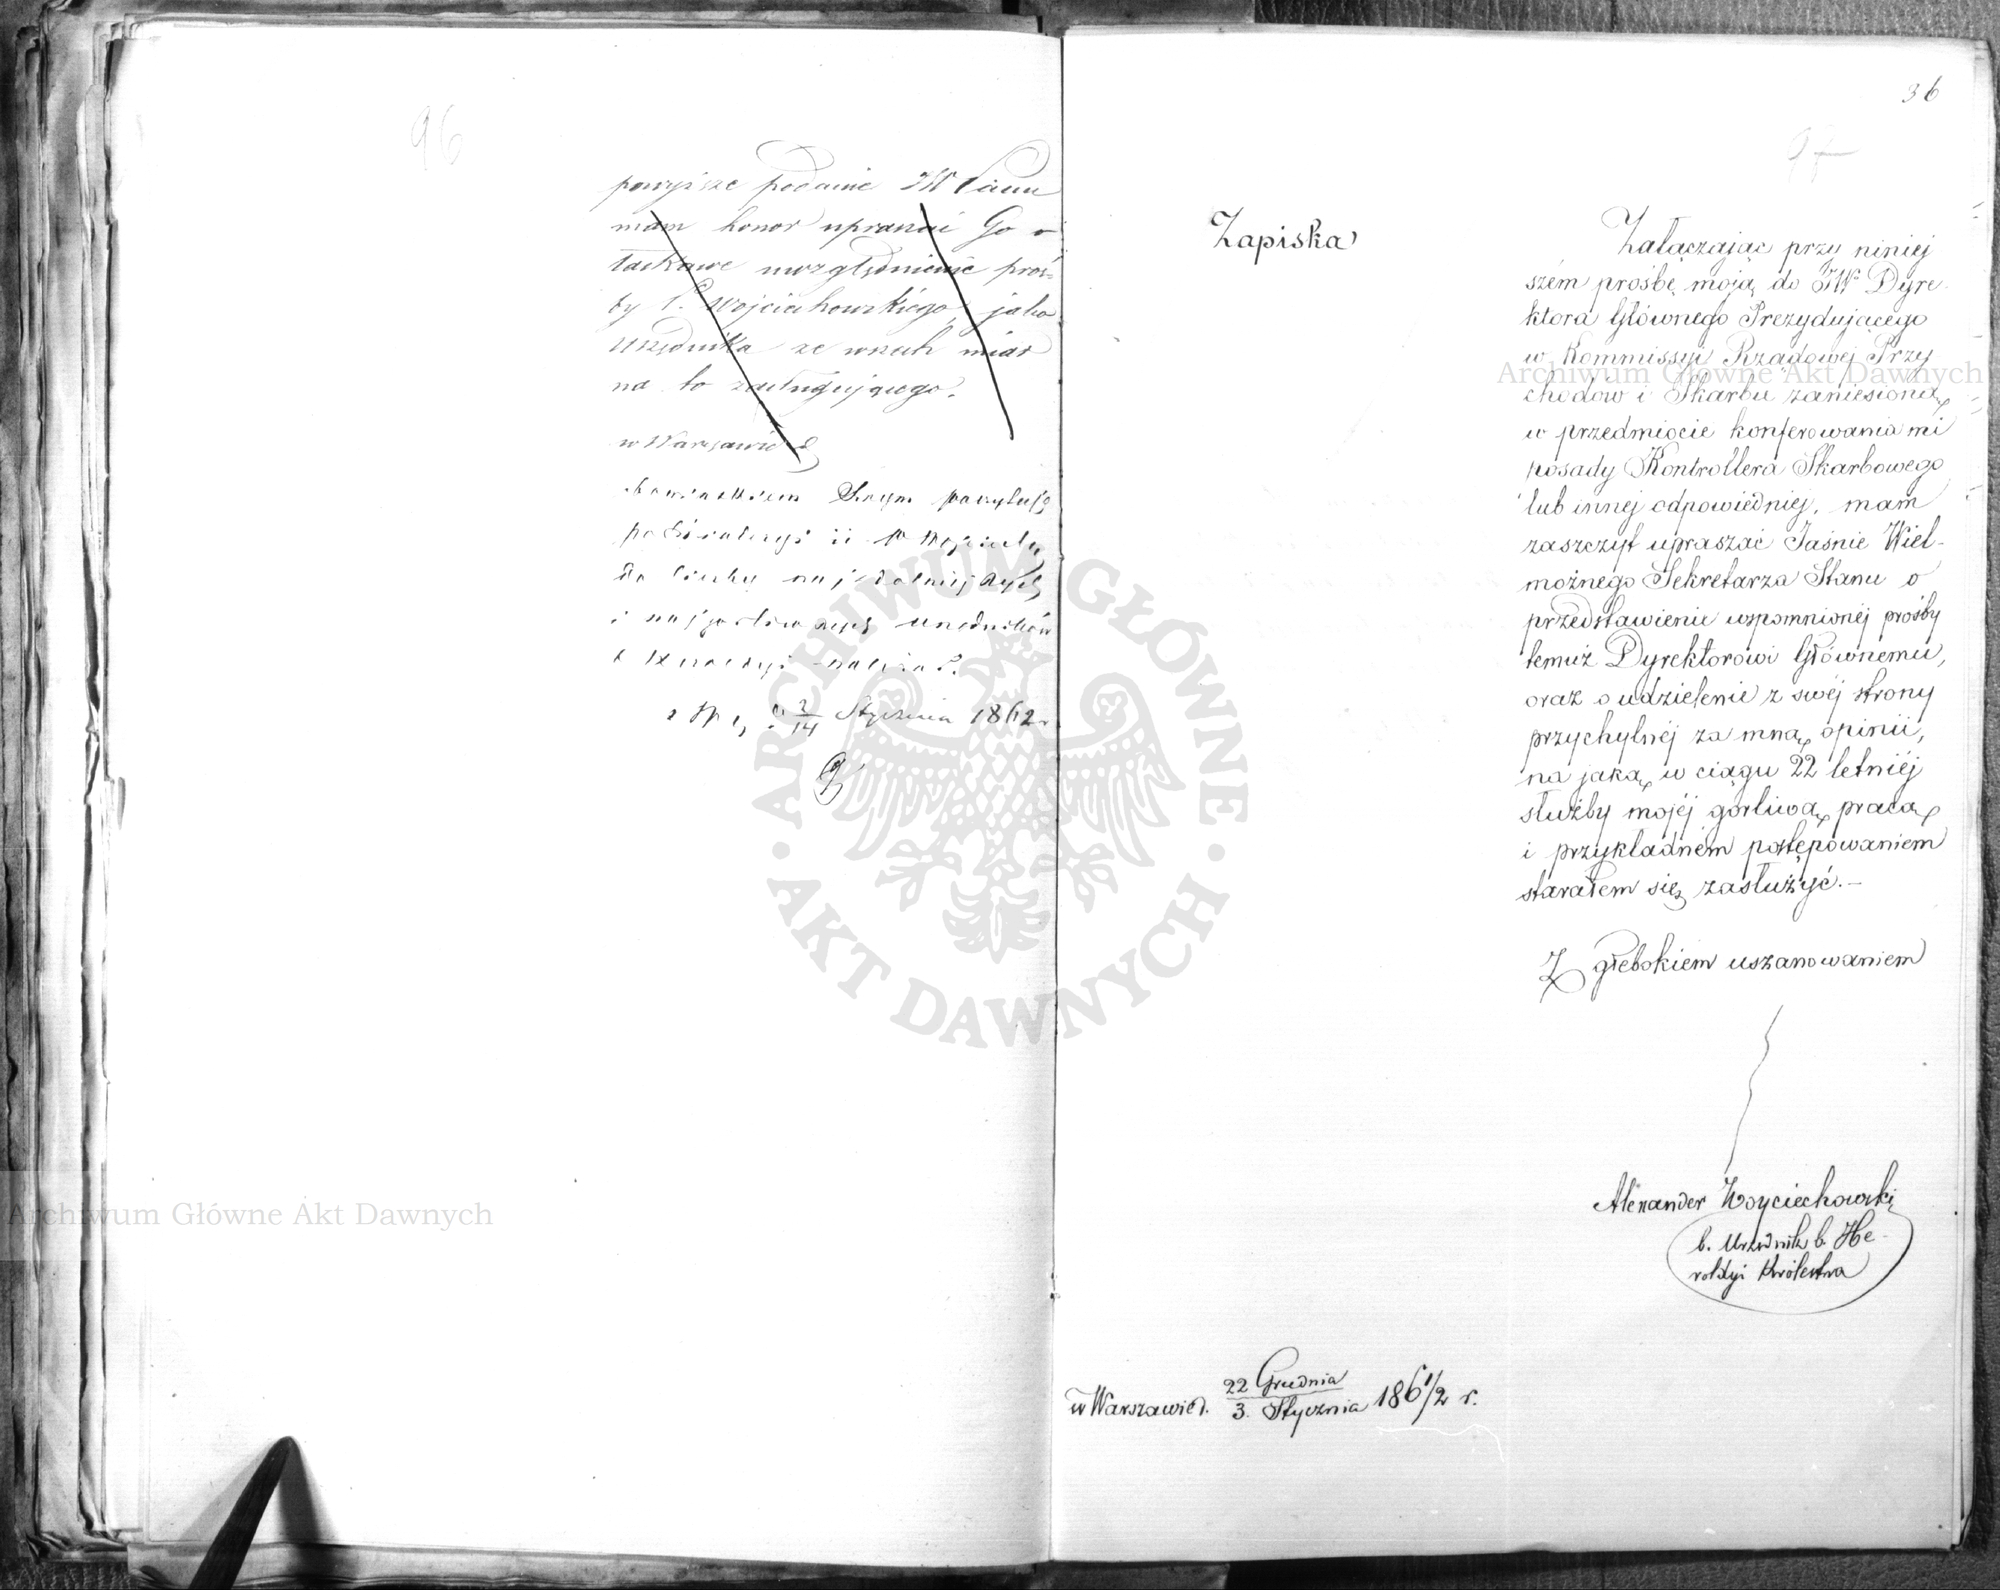 96
powyższe podanie JW Panu
mam honor upraszać Go o
łaskawe uwzględnienie proś-
by P. Wojciechowskiego, jako
Urzędnika ze wszech miar
na to zasługującego.
w Warszawie d.
do liczby najzdolniejszych
i najgorliwszych urzędników
2/14 Stycznia 1862 r
36
97
Zapiska
Załączając przy niniej
szém prośbę moją do JW° Dyre-
ktora Głównego Prezydującego
w Kommissyi Rządowéj Przy
chodów i Skarbu zaniesioną,
w przedmiocie konferowania mi
posady Kontrollera Skarbowego
lub innéj odpowiedniéj, mam
zaszczyt upraszać Jaśnie Wiel-
możnego Sekretarza Stanu o
przedstawienie wspomnionéj prośby
temuż Dyrektorowi Głównemu,
oraz o udzielenie z swéj strony
przychylnéj za mną opinii,
na jaką w ciągu 22 letniéj
służby mojéj gorliwą pracą
i przykładném postępowaniem
starałem się zasłużyć.—
Z głebokiem uszanowaniem
Alexander Woyciechowski
b. Urzędnik b. He-
roldyi Królestwa
w Warszawie d. 22 Grudnia / 3. Stycznia 186 1/2 r.
Archiwum Główne Akt Dawnych
Archiwum Główne Akt Dawnych
ARCHIWUM GŁÓWNE • AKT DAWNYCH •